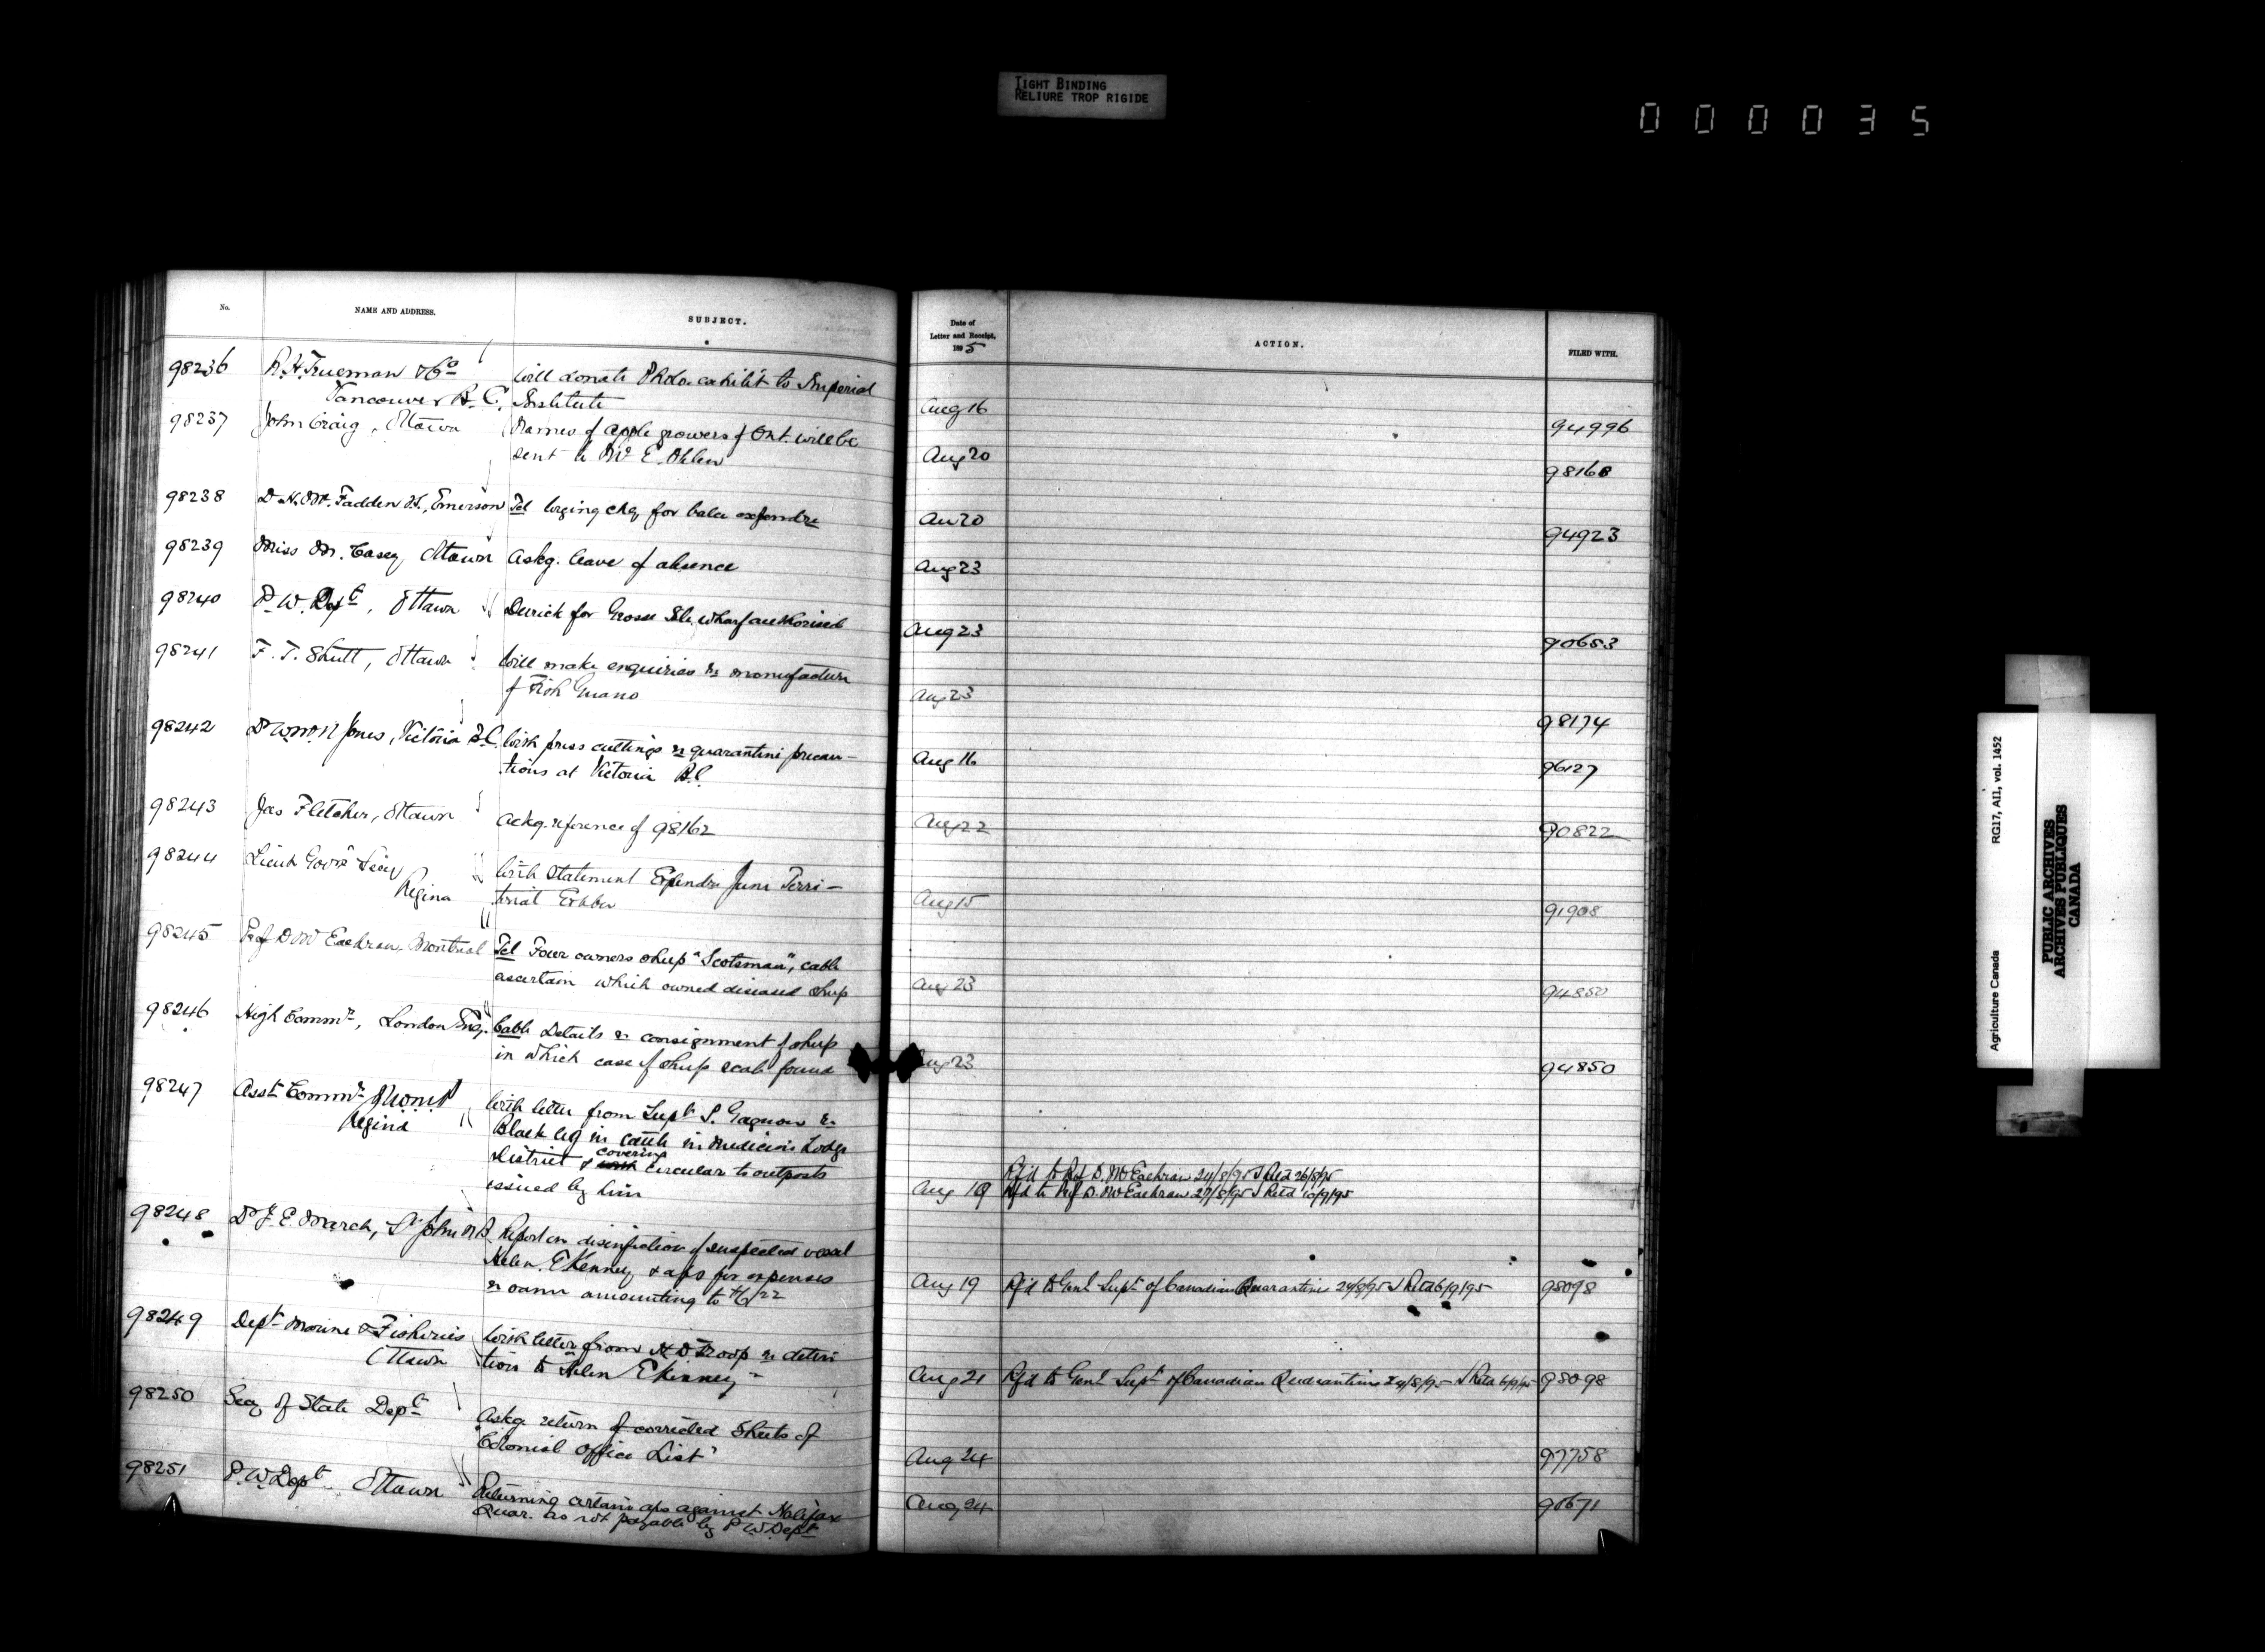 TIGHT BINDING
RELIURE TROP RIGIDE
000035
No.
NAME AND ADDRESS.
SUBJECT.
Date of
Letter and Receipt,
1895
ACTION.
FILED WITH.
98236 R.H. Trueman & Co Will donate Photo. exhibit to Imperial
Vancouver B.C. Institute Aug 16 94996
98237 John Craig, Ottawa Names of apple growers of Ont. will be
sent to Mr E. Ohlen Aug 20 98168
98238 D. H. McFadden V.S., Emerson Tel urging chq for balce expendre Au 20 94923
98239 Miss M. Casey Ottawa Askg. leave of absence Aug 23
98240 P.W. Dept, Ottawa Derrick for Grosse Isle wharf authorised Aug 23 90653
98241 F. T. Shutt, Ottawa Will make enquiries re manufacture
of Fish Guano Aug 23 98174
98242 Dr Jones, Victoria B.C. With press cuttings re quarantine precau-
tions at Victoria B.C. Aug 16 96127
98243 Jas Fletcher, Ottawa Ackg. reference of 98162 Aug 22 90822
98244 Lieut Govrs Secy With statement Expendre June Terri-
Regina torial Exhbn Aug 15 91908
98245 Prof D McEachran, Montreal Tel Four owners sheep "Scotsman", cable
ascertain which owned diseased sheep Aug 23 94850
98246 High Commr, London Eng. Cable Details re consignment of sheep
in which case of sheep scab found Aug 23 94850
98247 Asst Commr With letter from Supt S. Gagnon re
Regina Black leg in cattle in Medicine Lodge
District & covering circular to outposts Rfd to Prof D. McEachran 24/8/95 Retd 26/8/95
issued by him Aug 19 Rfd to Prof D. McEachran 27/8/95 Retd 10/9/95
98248 Dr J. E. March, St John N.B. Report on disinfection of suspected vessel
Helen E Kenney & a/cs for expenses
re same amounting to $6.22 Aug 19 Rfd to Genl Supt of Canadian Quarantine 24/8/95 Retd 6/9/95 98098
98249 Dept Marine & Fisheries With letter from H D Troop re deten
Ottawa tion to Helen E Kinney Aug 21 Rfd to Genl Supt of Canadian Quarantine 24/8/95 Retd 6/9/95 98098
98250 Secy of State Dept Askg return of corrected sheets of
"Colonial Office List" Aug 24 97758
98251 P.W. Dept Ottawa Returning certain a/cs against Halifax Aug 24 90671
Quar. as not payable by P.W. Dept
Agriculture Canada RG17, AII, vol. 1452
PUBLIC ARCHIVES
ARCHIVES PUBLIQUES
CANADA